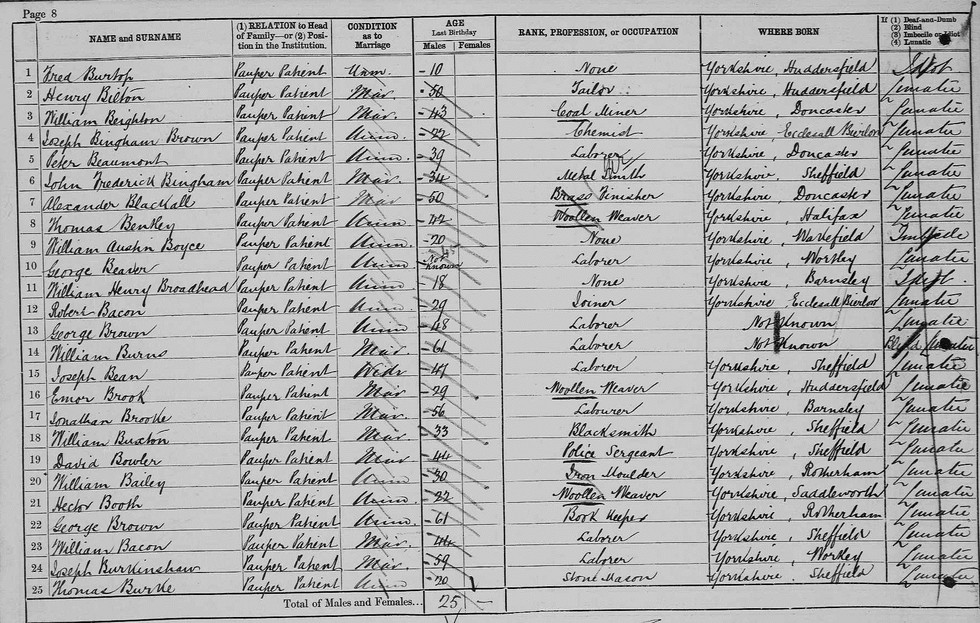 Page 8
NAME and SURNAME (1) RELATION to Head of Family—or (2) Position in the Institution. CONDITION as to Marriage AGE Last Birthday Males Females RANK, PROFESSION, or OCCUPATION WHERE BORN If (1) Deaf-and-Dumb (2) Blind (3) Imbecile or Idiot (4) Lunatic
1 Fred Burton Pauper Patient Unm. 10 None Yorkshire, Huddersfield Idiot
2 Henry Bilton Pauper Patient Mar. 50 Tailor Yorkshire, Huddersfield Lunatic
3 William Beighton Pauper Patient Mar. 43 Coal Miner Yorkshire, Doncaster Lunatic
4 Joseph Bingham Brown Pauper Patient Unm. 22 Chemist Yorkshire, Ecclesall Bierlow Lunatic
5 Peter Beaumont Pauper Patient Unm. 39 Laborer Yorkshire, Doncaster Lunatic
6 John Frederick Bingham Pauper Patient Mar. 34 Metal Smith Yorkshire, Sheffield Lunatic
7 Alexander Blackall Pauper Patient Mar 50 Brass Finisher Yorkshire, Doncaster Lunatic
8 Thomas Bentley Pauper Patient Unm. 42 Woollen Weaver Yorkshire, Halifax Lunatic
9 William Austin Boyce Pauper Patient Unm. 20 None Yorkshire, Wakefield Imbecile
10 George Beaver Pauper Patient Unm. Not Known Laborer Yorkshire, Wortley Lunatic
11 William Henry Broadhead Pauper Patient Unm 18 None Yorkshire, Barnsley Idiot.
12 Robert Bacon Pauper Patient Unm 29 Joiner Yorkshire Ecclesall Bierlow Lunatic
13 George Brown Pauper Patient Unm 48 Laborer Not Known Lunatic
14 William Burns Pauper Patient Mar. 61 Laborer Not Known Blind Lunatic
15 Joseph Bean Pauper Patient Widr 47 Laborer Yorkshire, Sheffield Lunatic
16 Emor Brook Pauper Patient Mar 29 Woollen Weaver Yorkshire, Huddersfield Lunatic
17 Jonathan Brooke Pauper Patient Mar. 56 Labourer Yorkshire, Barnsley Lunatic
18 William Buxton Pauper Patient Mar. 33 Blacksmith Yorkshire, Sheffield Lunatic
19 David Bowler Pauper Patient Mar 44 Police Sergeant Yorkshire, Sheffield Lunatic
20 William Bailey Pauper Patient Unm. 30 Iron Moulder Yorkshire, Rotherham Lunatic
21 Hector Booth Pauper Patient Unm. 22 Woollen Weaver Yorkshire, Saddleworth Lunatic
22 George Brown Pauper Patient Unm. 61 Book Keeper Yorkshire, Rotherham Lunatic
23 William Bacon Pauper Patient Mar. 44 Laborer Yorkshire, Sheffield Lunatic
24 Joseph Burkinshaw Pauper Patient Mar. 59 Laborer Yorkshire, Wortley Lunatic
25 Thomas Burke Pauper Patient Unm 20 Stone Mason Yorkshire. Sheffield Lunatic
Total of Males and Females... 25 —